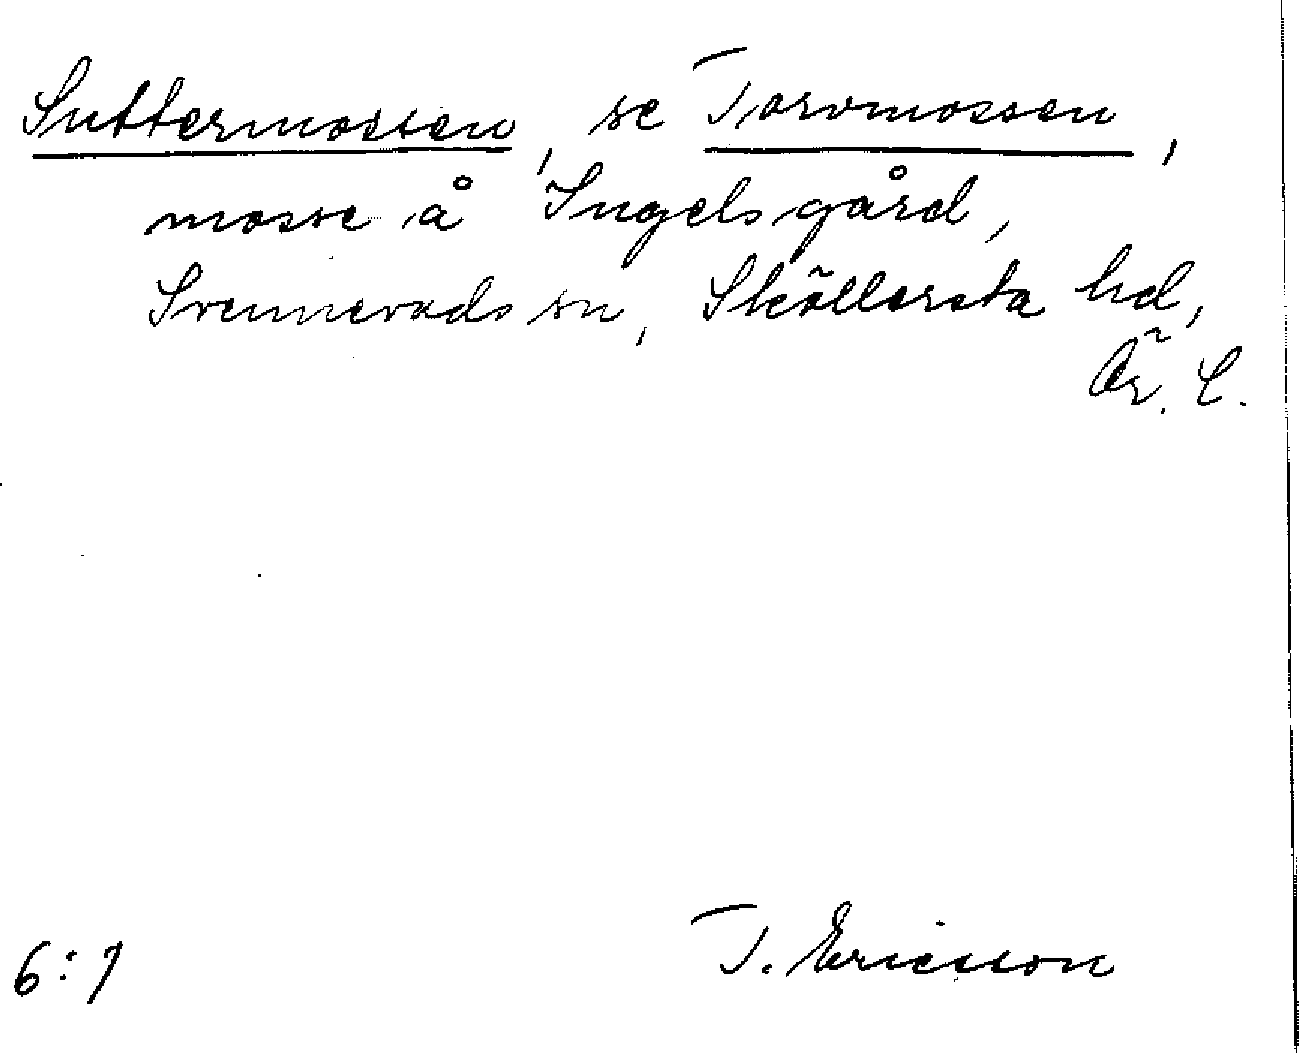 Suttermossen, se Torvmossen,
mosse å Ingelsgård,
Svennevads sn, Sköllersta hd,
Ör. l.
6:7 T. Ericsson